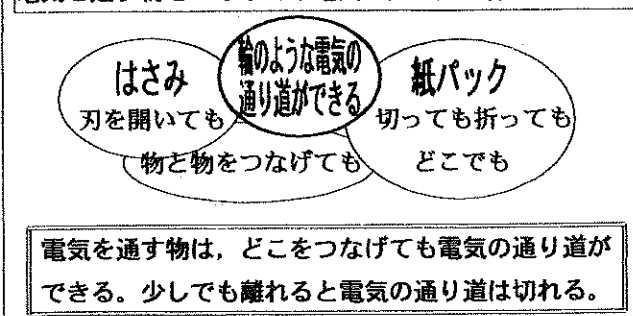 輪のような電気の
通り道ができる
はさみ
刃を開いても
紙パック
切っても折っても
どこでも
物と物をつなげても
電気を通す物は，どこをつなげても電気の通り道が
できる。少しでも離れると電気の通り道は切れる。